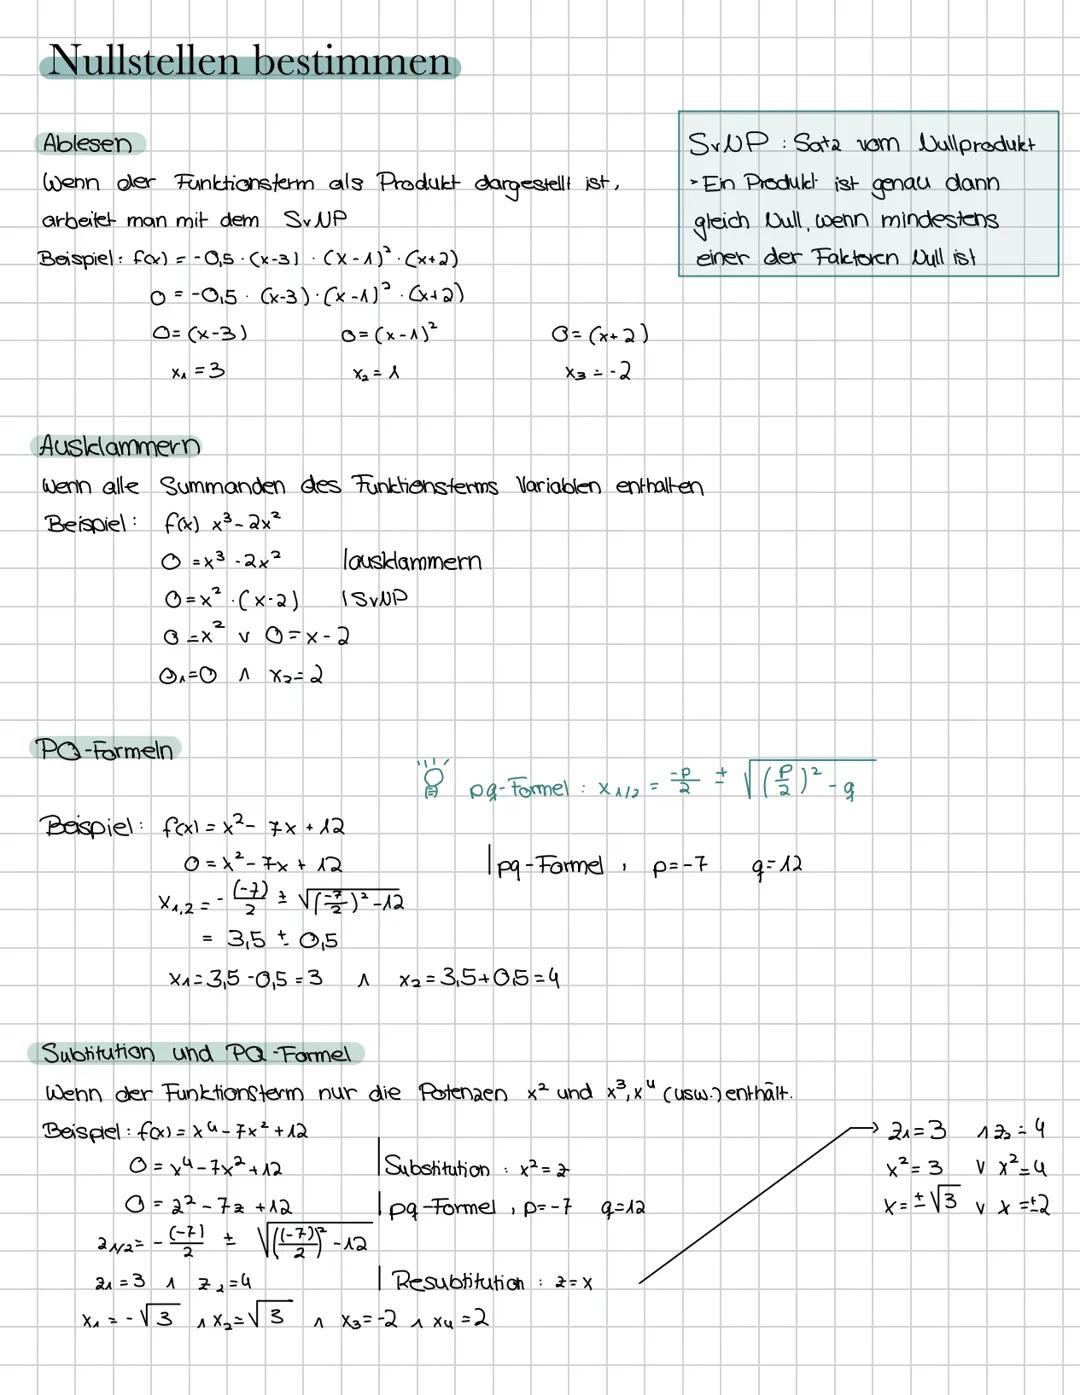 Nullstellen bestimmen
Ablesen
Wenn der Funktionsterm als Produkt dargestellt ist,
arbeitet man mit dem SvNP
Beispiel: f(x) = -0,5 · (x-3) · (x-1)² · (x+2)
0 = -0,5 · (x-3) · (x-1)² · (x+2)
0 = (x-3) 0 = (x-1)² 0 = (x+2)
x₁ = 3 x₂ = 1 x₃ = -2
SvNP : Satz vom Nullprodukt
- Ein Produkt ist genau dann
gleich Null, wenn mindestens
einer der Faktoren Null ist
Ausklammern
Wenn alle Summanden des Funktionsterms Variablen enthalten
Beispiel: f(x) x³ - 2x²
0 = x³ - 2x² |ausklammern
0 = x² · (x-2) | SvNP
0 = x² v 0 = x - 2
0₁ = 0 ∧ x₂ = 2
PQ-Formeln
pq-Formel : x₁/₂ = -p/2 ± √((p/2)² - q)
Beispiel: f(x) = x² - 7x + 12
0 = x² - 7x + 12 | pq-Formel , p=-7 q=12
x₁,₂ = - (-7)/2 ± √((-7/2)² - 12)
= 3,5 ± 0,5
x₁ = 3,5 - 0,5 = 3 ∧ x₂ = 3,5 + 0,5 = 4
Subtitution und PQ-Formel
Wenn der Funktionsterm nur die Potenzen x² und x³, x⁴ (usw.) enthält.
Beispiel: f(x) = x⁴ - 7x² + 12
0 = x⁴ - 7x² + 12 | Substitution : x² = z
0 = z² - 7z + 12 | pq-Formel , p=-7 q=12
z₁/₂ = - (-7)/2 ± √(((-7)/2)² - 12)
z₁ = 3 ∧ z₂ = 4 | Resubtitution : z = x
x₁ = -√3 ∧ x₂ = √3 ∧ x₃ = -2 ∧ x₄ = 2
→ z₁ = 3 ∧ z₂ = 4
x² = 3 v x² = 4
x = ±√3 v x = ±2